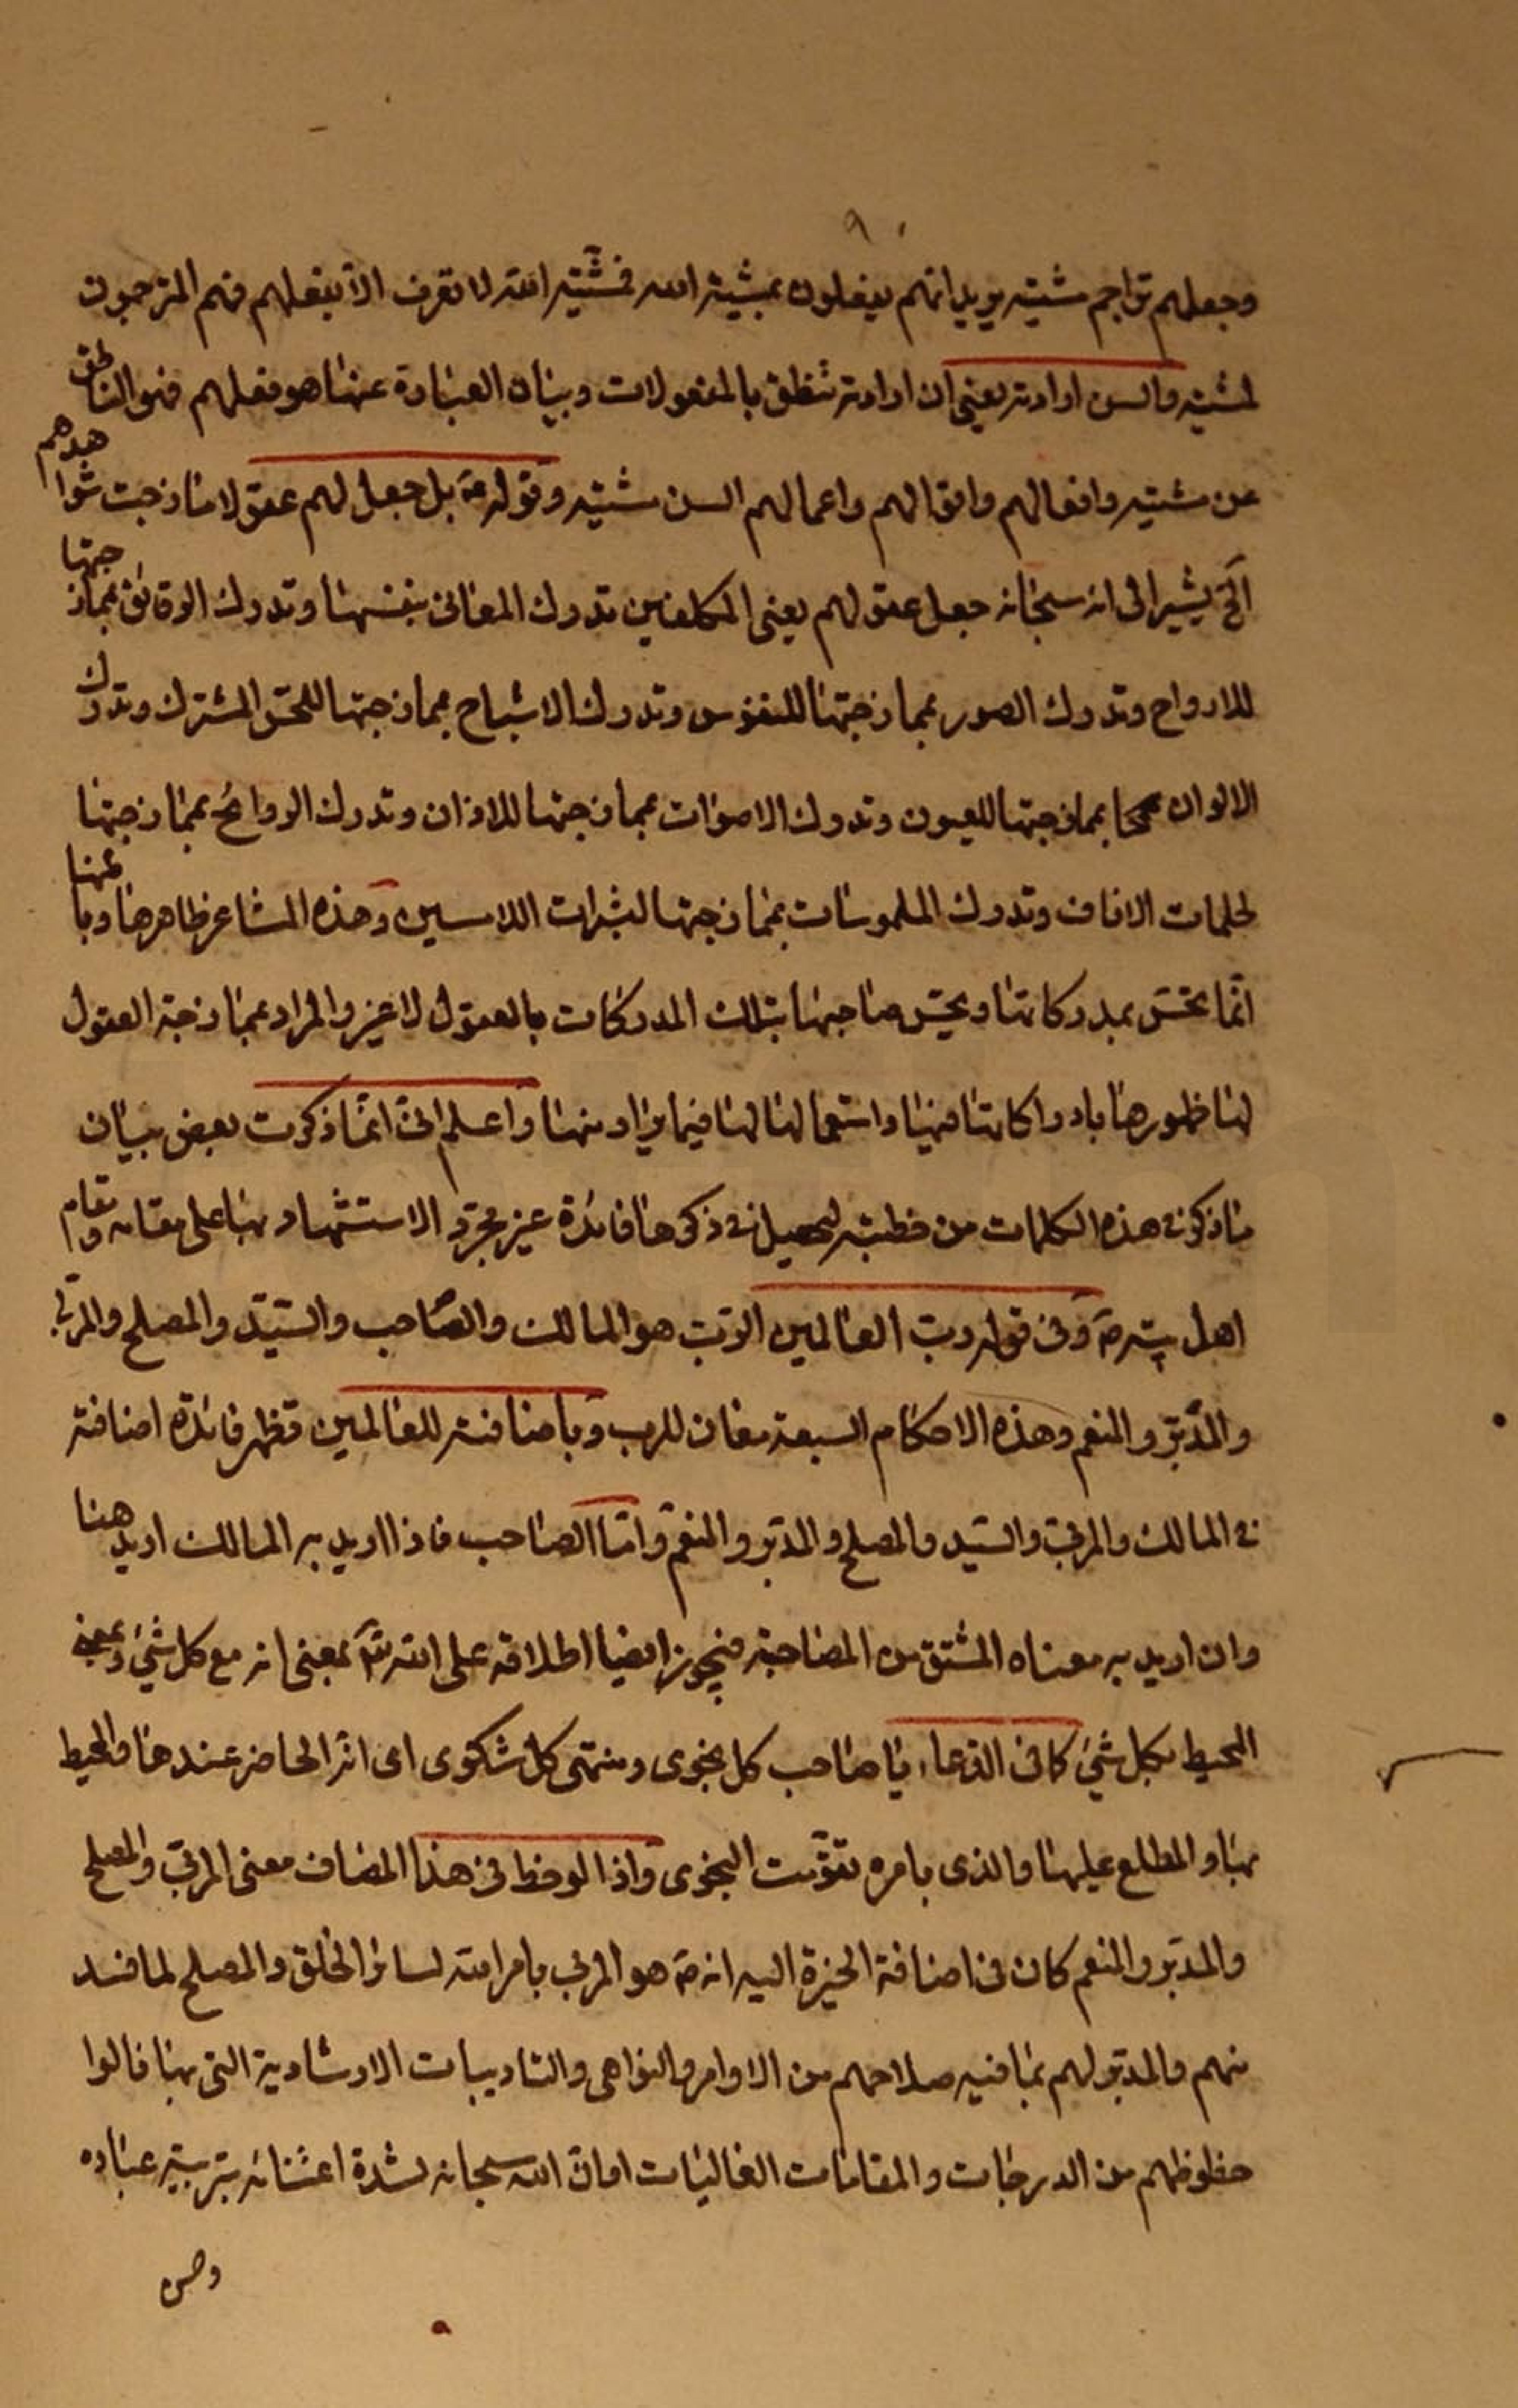 ٩٠
وجعلهم تراجم مشيته يريد انهم يفعلون بمشية الله فمشية الله لا تعرف الا بفعلهم فهم المترجمون
لمشيته والسن ارادته يعني ان ارادته تنطق بالمفعولات وبيان العبارة عنها هو فعلهم فهو الناطق
عن مشيته وافعالهم واقوالهم واعمالهم السن مشيته وقوله ع بل جعل لهم عقولا مازجت شواهدهم
الخ يشير الى انه سبحانه جعل عقولهم يعني المكلفين تدرك المعاني بنفسها وتدرك الرقائق بممازجتها
للارواح وتدرك الصور بممازجتها للنفوس وتدرك الاشباح بممازجتها للحس المشترك وتدرك
الالوان بممازجتها للعيون وتدرك الاصوات بممازجتها للاذان وتدرك الروائح بممازجتها
لحلمات الاناف وتدرك الملموسات بممازجتها لبشرات اللامسين وهذه المشاعر ظاهرها وباطنها
انما تحس بمدركاتها ويحس صاحبها بتلك المدركات بالعقول لا غير والمراد بممازجة العقول
لها ظهورها بادراكاتها فيها واستعمالها لها فيما يراد منها واعلم اني انما ذكرت بعض بيان
ما ذكر في هذه الكلمات من خطبته ليحصل في ذكرها فائدة غير مجرد الاستشهاد بها على مقامه ومقام
اهل بيته ص وفي قوله رب العالمين الرب هو المالك والصاحب والسيد والمصلح والمربي
والمدبر والمنعم وهذه الاحكام السبعة معان للرب وباضافته للعالمين تظهر فائدة اضافته
في المالك والمربي والسيد والمصلح والمدبر والمنعم واما الصاحب فاذا اريد به المالك اريد هنا
وان اريد به معناه المشتق من المصاحبة فيجوز ايضا اطلاقه على الله تعالى بمعنى انه مع كل شيء وبمعنى
المحيط بكل شيء كما في الدعاء يا صاحب كل نجوى ومنتهى كل شكوى اي انه الحاضر عندها والمحيط
بها والمطلع عليها والذي بامره تقومت النجوى واذا لوحظ في هذا المضاف معنى المربي والمصلح
والمدبر والمنعم كان في اضافة الخيرة اليه انه ص هو المربي بامر الله لسائر الخلق والمصلح لما فسد
منهم والمدبر لهم بما فيه صلاحهم من الاوامر والنواهي والتاديبات الارشادية التي بها نالوا
حظوظهم من الدرجات والمقامات العاليات او ان الله سبحانه لشدة اعتنائه بتربية عباده